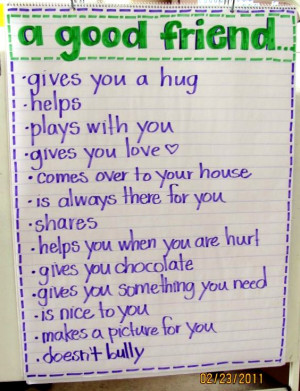 a good friend...
·gives you a hug
·helps
·plays with you
·gives you love ♡
·comes over to your house
·is always there for you
·shares
·helps you when you are hurt
·gives you chocolate
·gives you something you need
·is nice to you
·makes a picture for you
·doesn't bully
02/23/2011